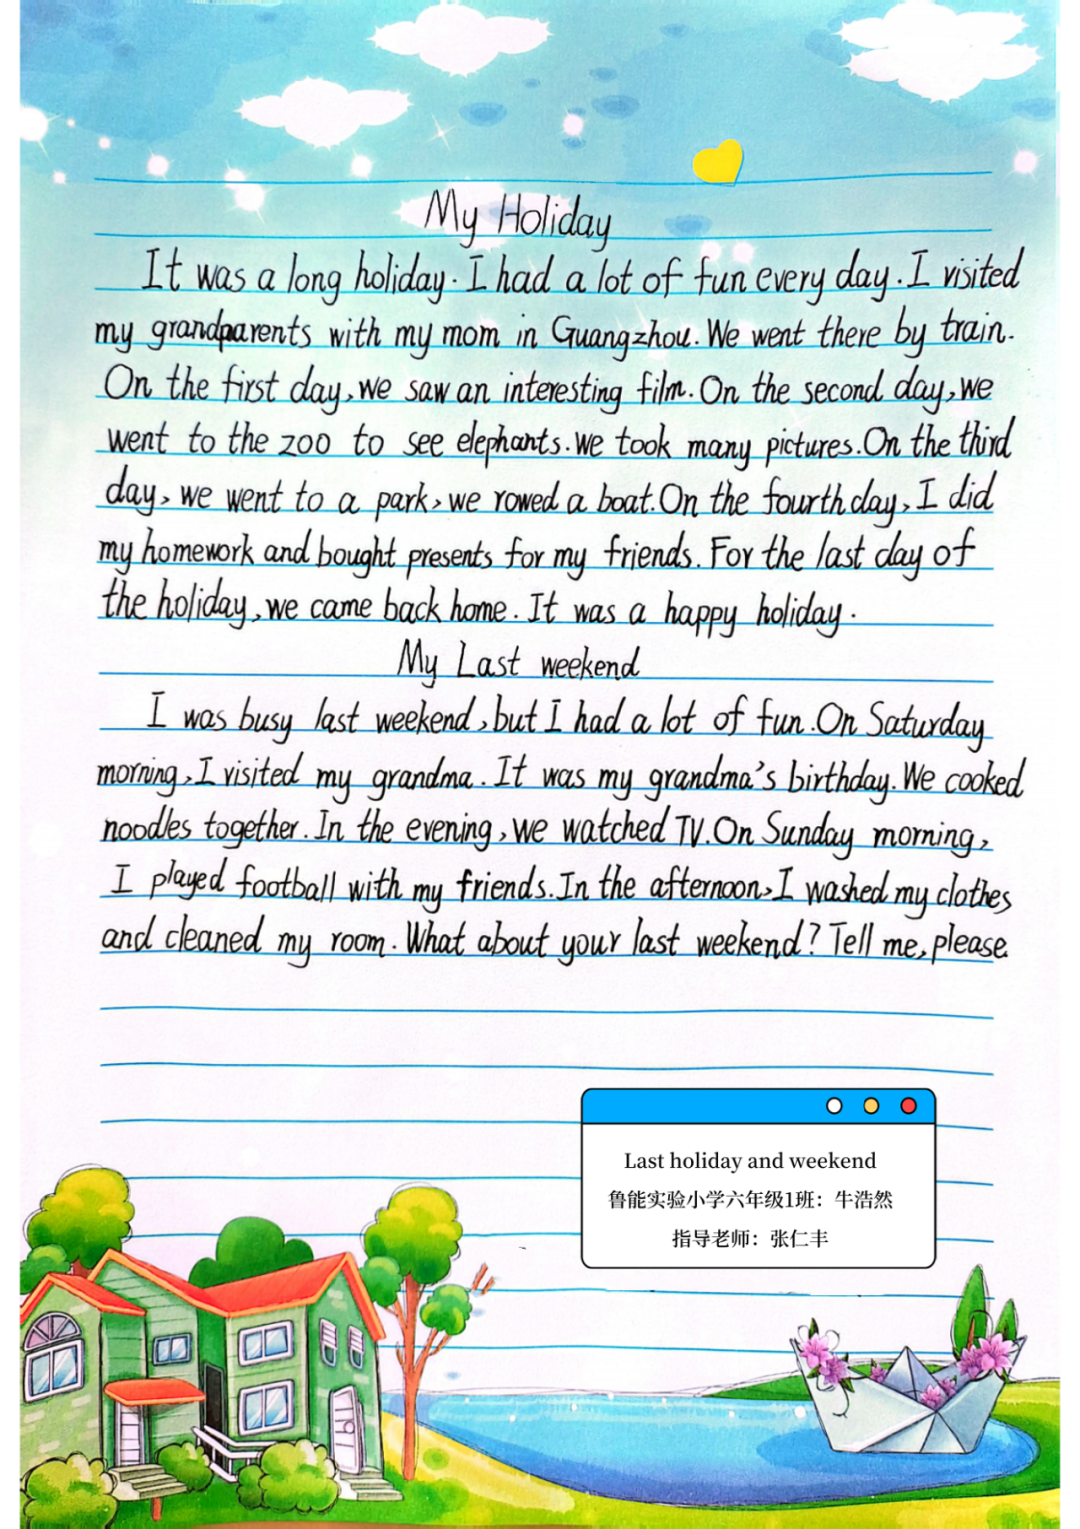 My Holiday
It was a long holiday. I had a lot of fun every day. I visited
my grandparents with my mom in Guangzhou. We went there by train.
On the first day, we saw an interesting film. On the second day, we
went to the zoo to see elephants. We took many pictures. On the third
day, we went to a park, we rowed a boat. On the fourth day, I did
my homework and bought presents for my friends. For the last day of
the holiday, we came back home. It was a happy holiday.
My Last weekend
I was busy last weekend, but I had a lot of fun. On Saturday
morning, I visited my grandma. It was my grandma's birthday. We cooked
noodles together. In the evening, we watched TV. On Sunday morning,
I played football with my friends. In the afternoon, I washed my clothes
and cleaned my room. What about your last weekend? Tell me, please.
Last holiday and weekend
鲁能实验小学六年级1班：牛浩然
指导老师：张仁丰